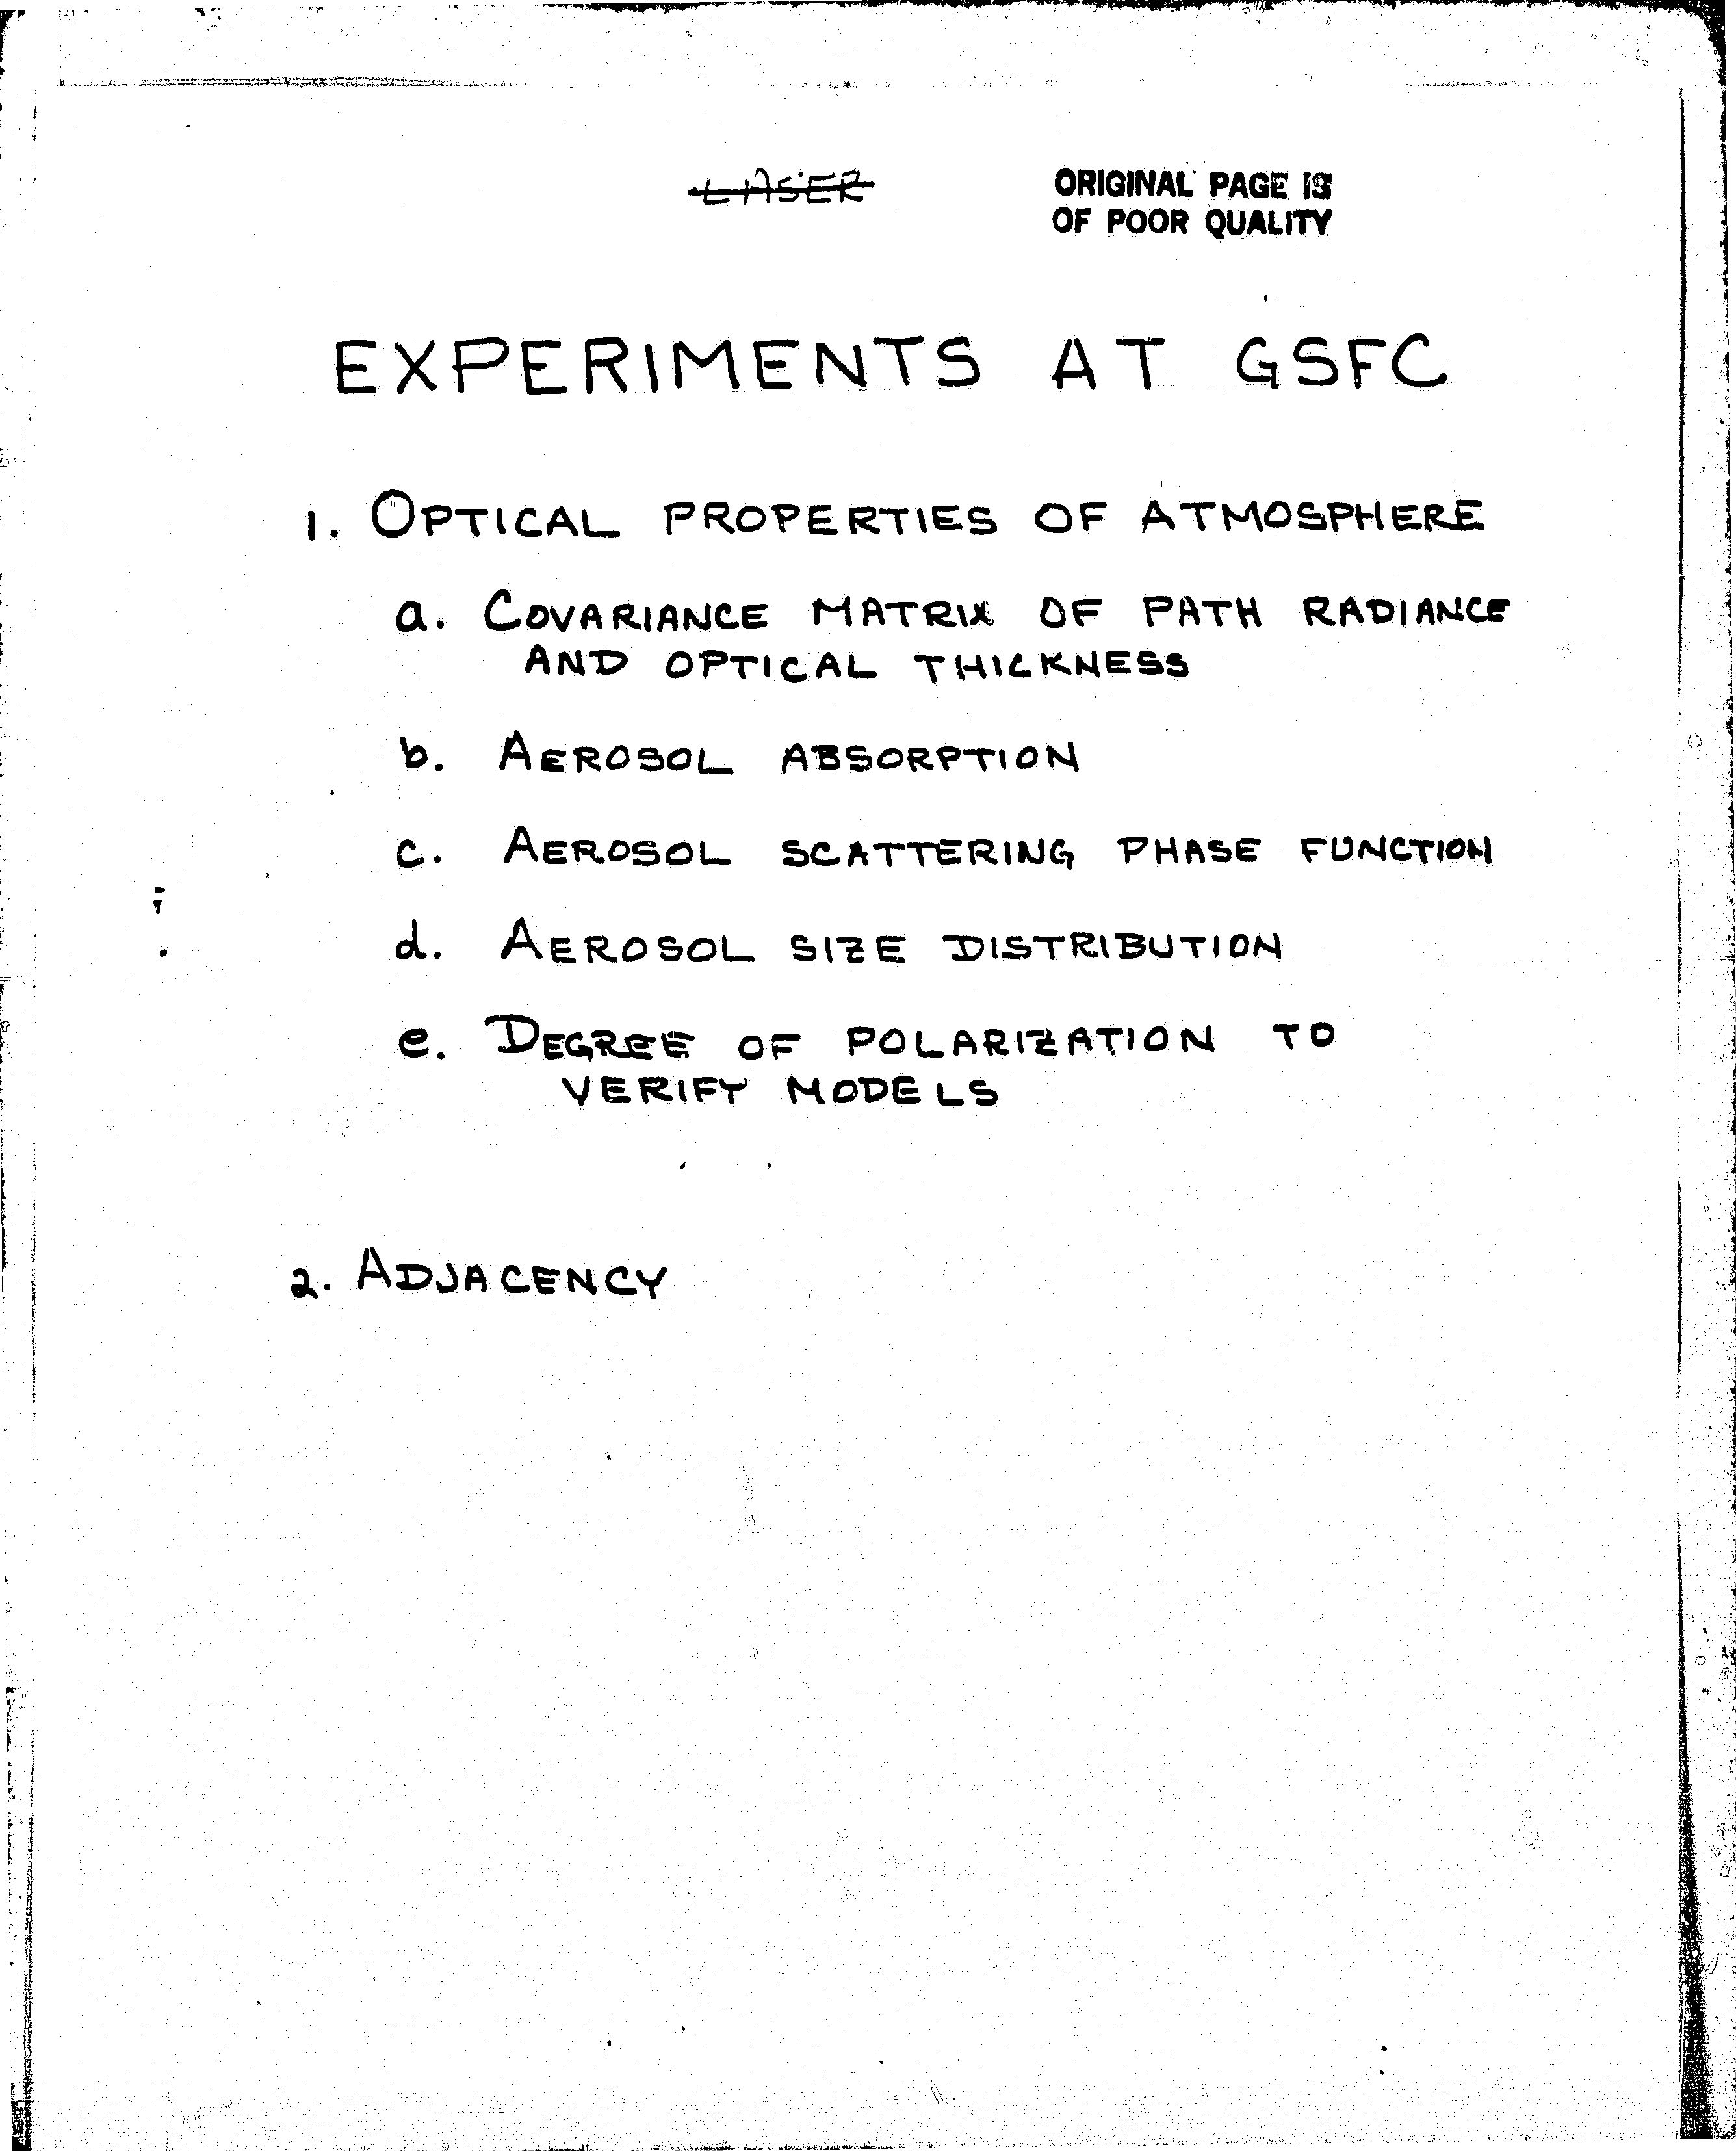 LASER
ORIGINAL PAGE IS
OF POOR QUALITY
EXPERIMENTS AT GSFC
1. OPTICAL PROPERTIES OF ATMOSPHERE
a. COVARIANCE MATRIX OF PATH RADIANCE
AND OPTICAL THICKNESS
b. AEROSOL ABSORPTION
c. AEROSOL SCATTERING PHASE FUNCTION
d. AEROSOL SIZE DISTRIBUTION
e. DEGREE OF POLARIZATION TO
VERIFY MODELS
2. ADJACENCY